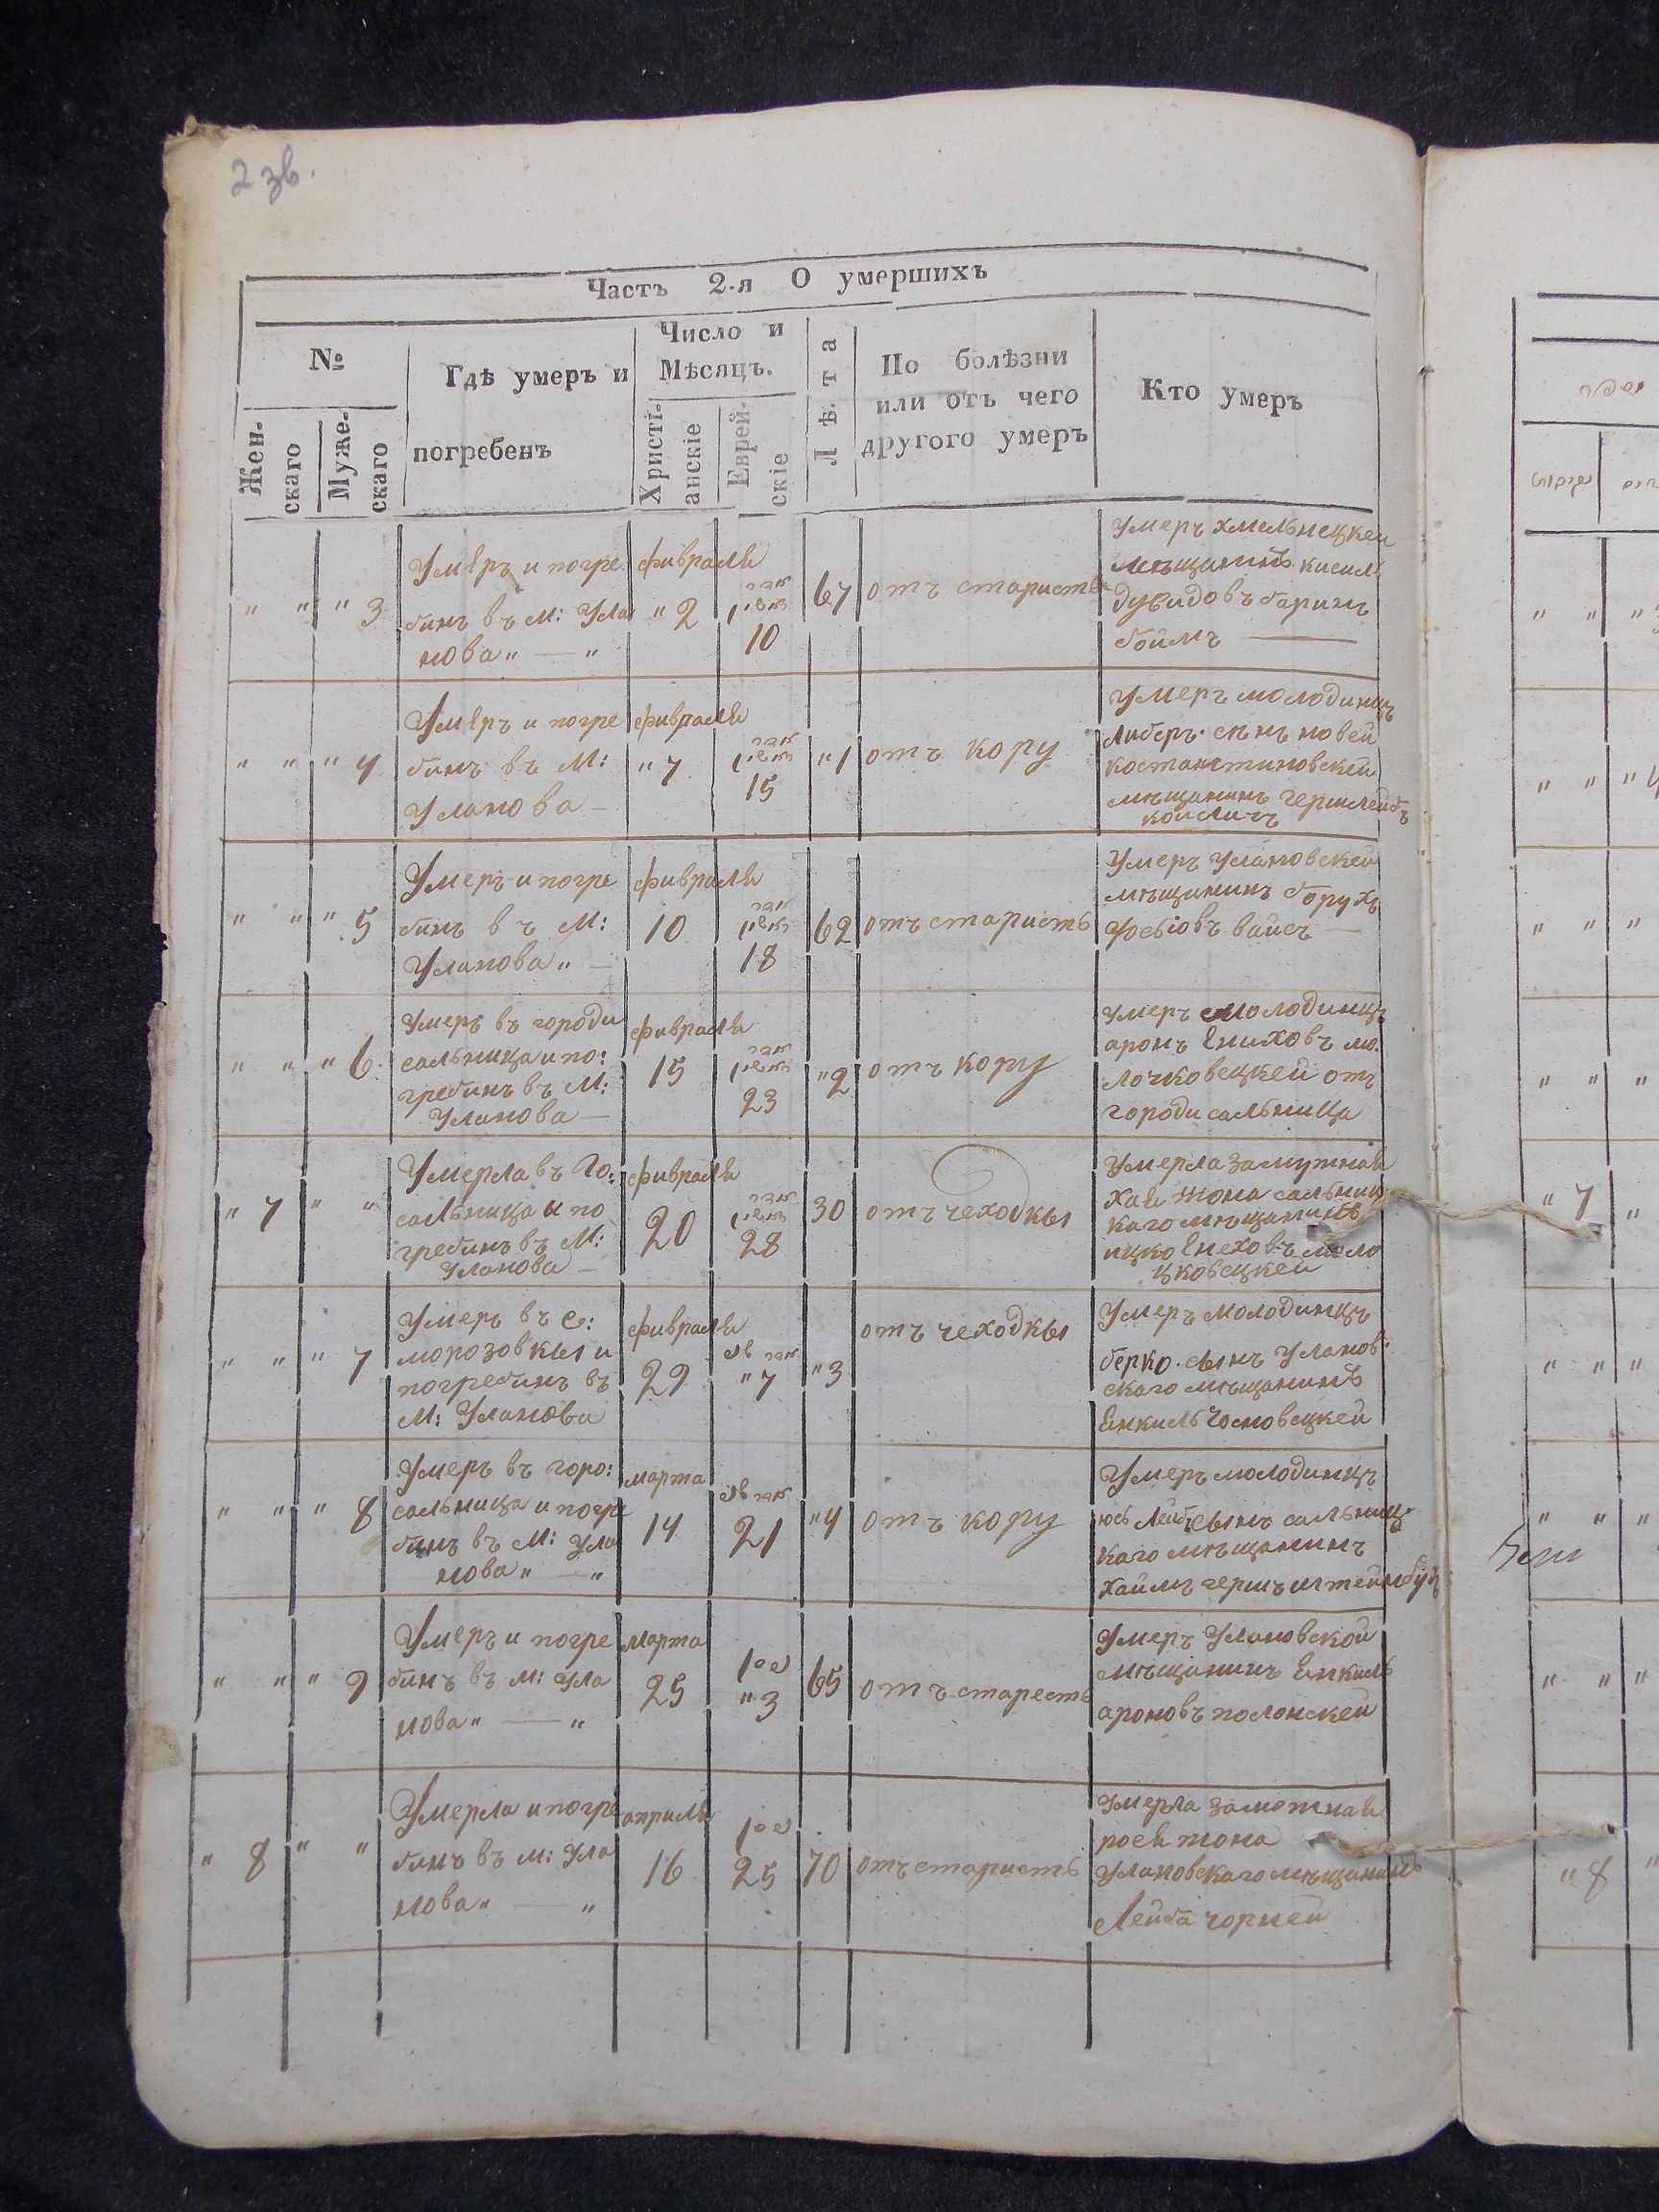 2 зв.
Часть 2-я О умершихъ
№
Жен-
скаго
Муже-
скаго
Гдѣ умеръ и
погребенъ
Число и
Мѣсяцъ.
Христі-
анскіе
Еврей-
скіе
Лѣта
По болѣзни
или отъ чего
другого умеръ
Кто умеръ
" " " 3
Умеръ и погре
бинъ въ М: Ула
нова " — "
февраля
" 2
10
67
отъ старисть
Умеръ хмельнецкей
мещанинъ кисиль
дувидовъ баринъ
боймъ —
" " " 4
Умеръ и погре
бинъ въ М:
Уланова —
февраля
" 7
15
" 1
отъ кору
Умеръ молодинцъ
Либеръ. сынъ новей
костантиновскей
мещанинъ гершлейбъ
" " " 5
Умеръ и погре
бинъ въ М:
Уланова " —
февраля
10
18
62
отъ старисть
Умеръ Улановскей
мещанинъ борухъ
вайсъ —
" " " 6
Умеръ въ городи
сальница и по:
гребинъ въ М:
Уланова —
февраля
15
23
" 2
отъ кору
Умеръ молодинцъ
аронъ Ениховъ мо.
лочковецкей отъ
городи сальница
" 7 " "
Умерла въ Го:
сальница и по
гребинъ въ М:
Уланова —
февраля
20
28
30
отъ чеходкы
Умерла замужная
Хая жона сальниц
каго мещанинъ
ицко Енеховъ моло
цковецкей
" " " 7
Умеръ въ С:
морозовкы и
погребинъ въ
М: Уланова
февраля
29
" 7
" 3
отъ чеходкы
Умеръ молодинцъ
берко. сынъ Уланов.
скаго мещанинъ
Енкиль Чосновецкей
" " " 8
Умеръ въ горо:
сальница и погре
бинъ въ М: Ула
нова " — "
марта
14
21
" 4
отъ кору
Умеръ молодинцъ
юсь Лейб сынъ сальниц
каго мещанинъ
хаимъ гершъ
" " " 9
Умеръ и погре
бинъ въ М: Ула
нова " — "
марта
25
" 3
65
отъ старесть
Умеръ Улановской
мещанинъ Енкиль
ароновъ полонскей
" 8 " "
Умерла и погре
бинъ въ М: Ула
нова " — "
априля
16
25
70
отъ старисть
Умерла замотная
рося жона
Улановскаго мещанинъ
Лейба чорней
" 7
" 8